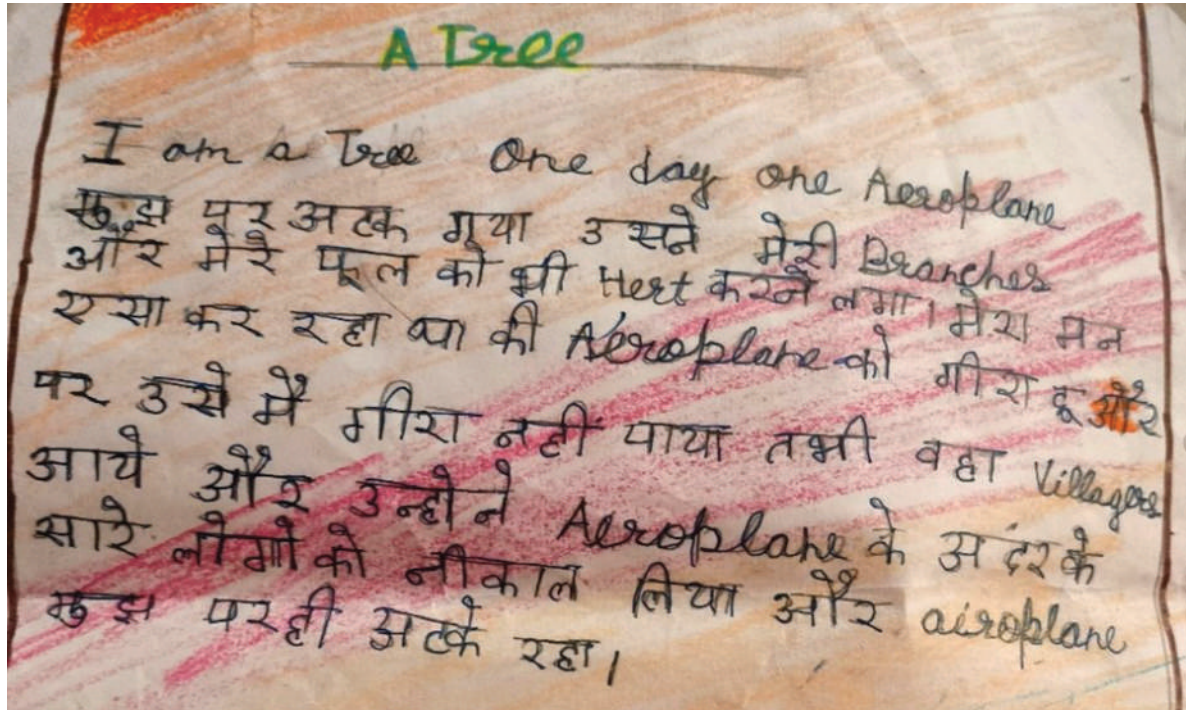 A Tree
I am a Tree one day one Aeroplane
मुझ पर अटक गया उसने मेरी Branches
और मेरे फूल को भी Hert करने लगा। मेरा मन
एसा कर रहा था की Aeroplane को गीरा दू और
पर उसे मैं गीरा नहीं पाया तभी वहा Villagers
आये और उन्होने Aeroplane के अंदर के
सारे लोगो को नीकाल लिया और airoplane
मुझ पर ही अटके रहा।